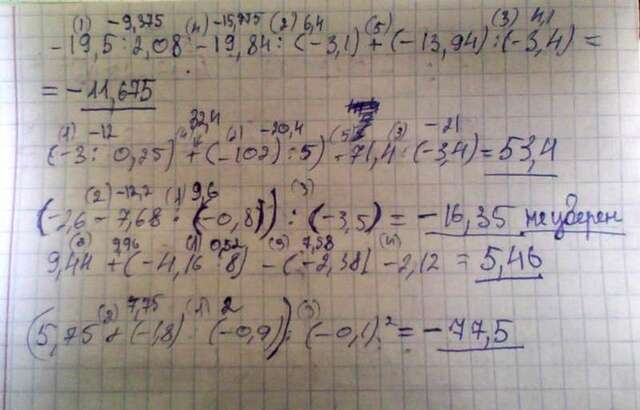 (1) -9,375 (4) -15,775 (2) 6,4 (5) (3) 4,1
-19,5 : 2,08 - 19,84 : (-3,1) + (-13,94) : (-3,4) =
= -11,675
(1) -12 (4) 32,4 (2) -20,4 (5) (3) -21
(-3 : 0,25) + (-102) : 5) - 71,4 : (-3,4) = 53,4
(2) -12,2 (1) 9,6 (3)
(-2,6 - 7,68 : (-0,8)) : (-3,5) = -16,35 не уверен
(2) 996 (1) 0,52 (3) 7,58 (4)
9,44 + (-4,16 : 8) - (-2,38) - 2,12 = 5,46
(2) 7,75 (1) 2 (3)
(5,75 + (-1,8) : (-0,9)) : (-0,1)² = -77,5